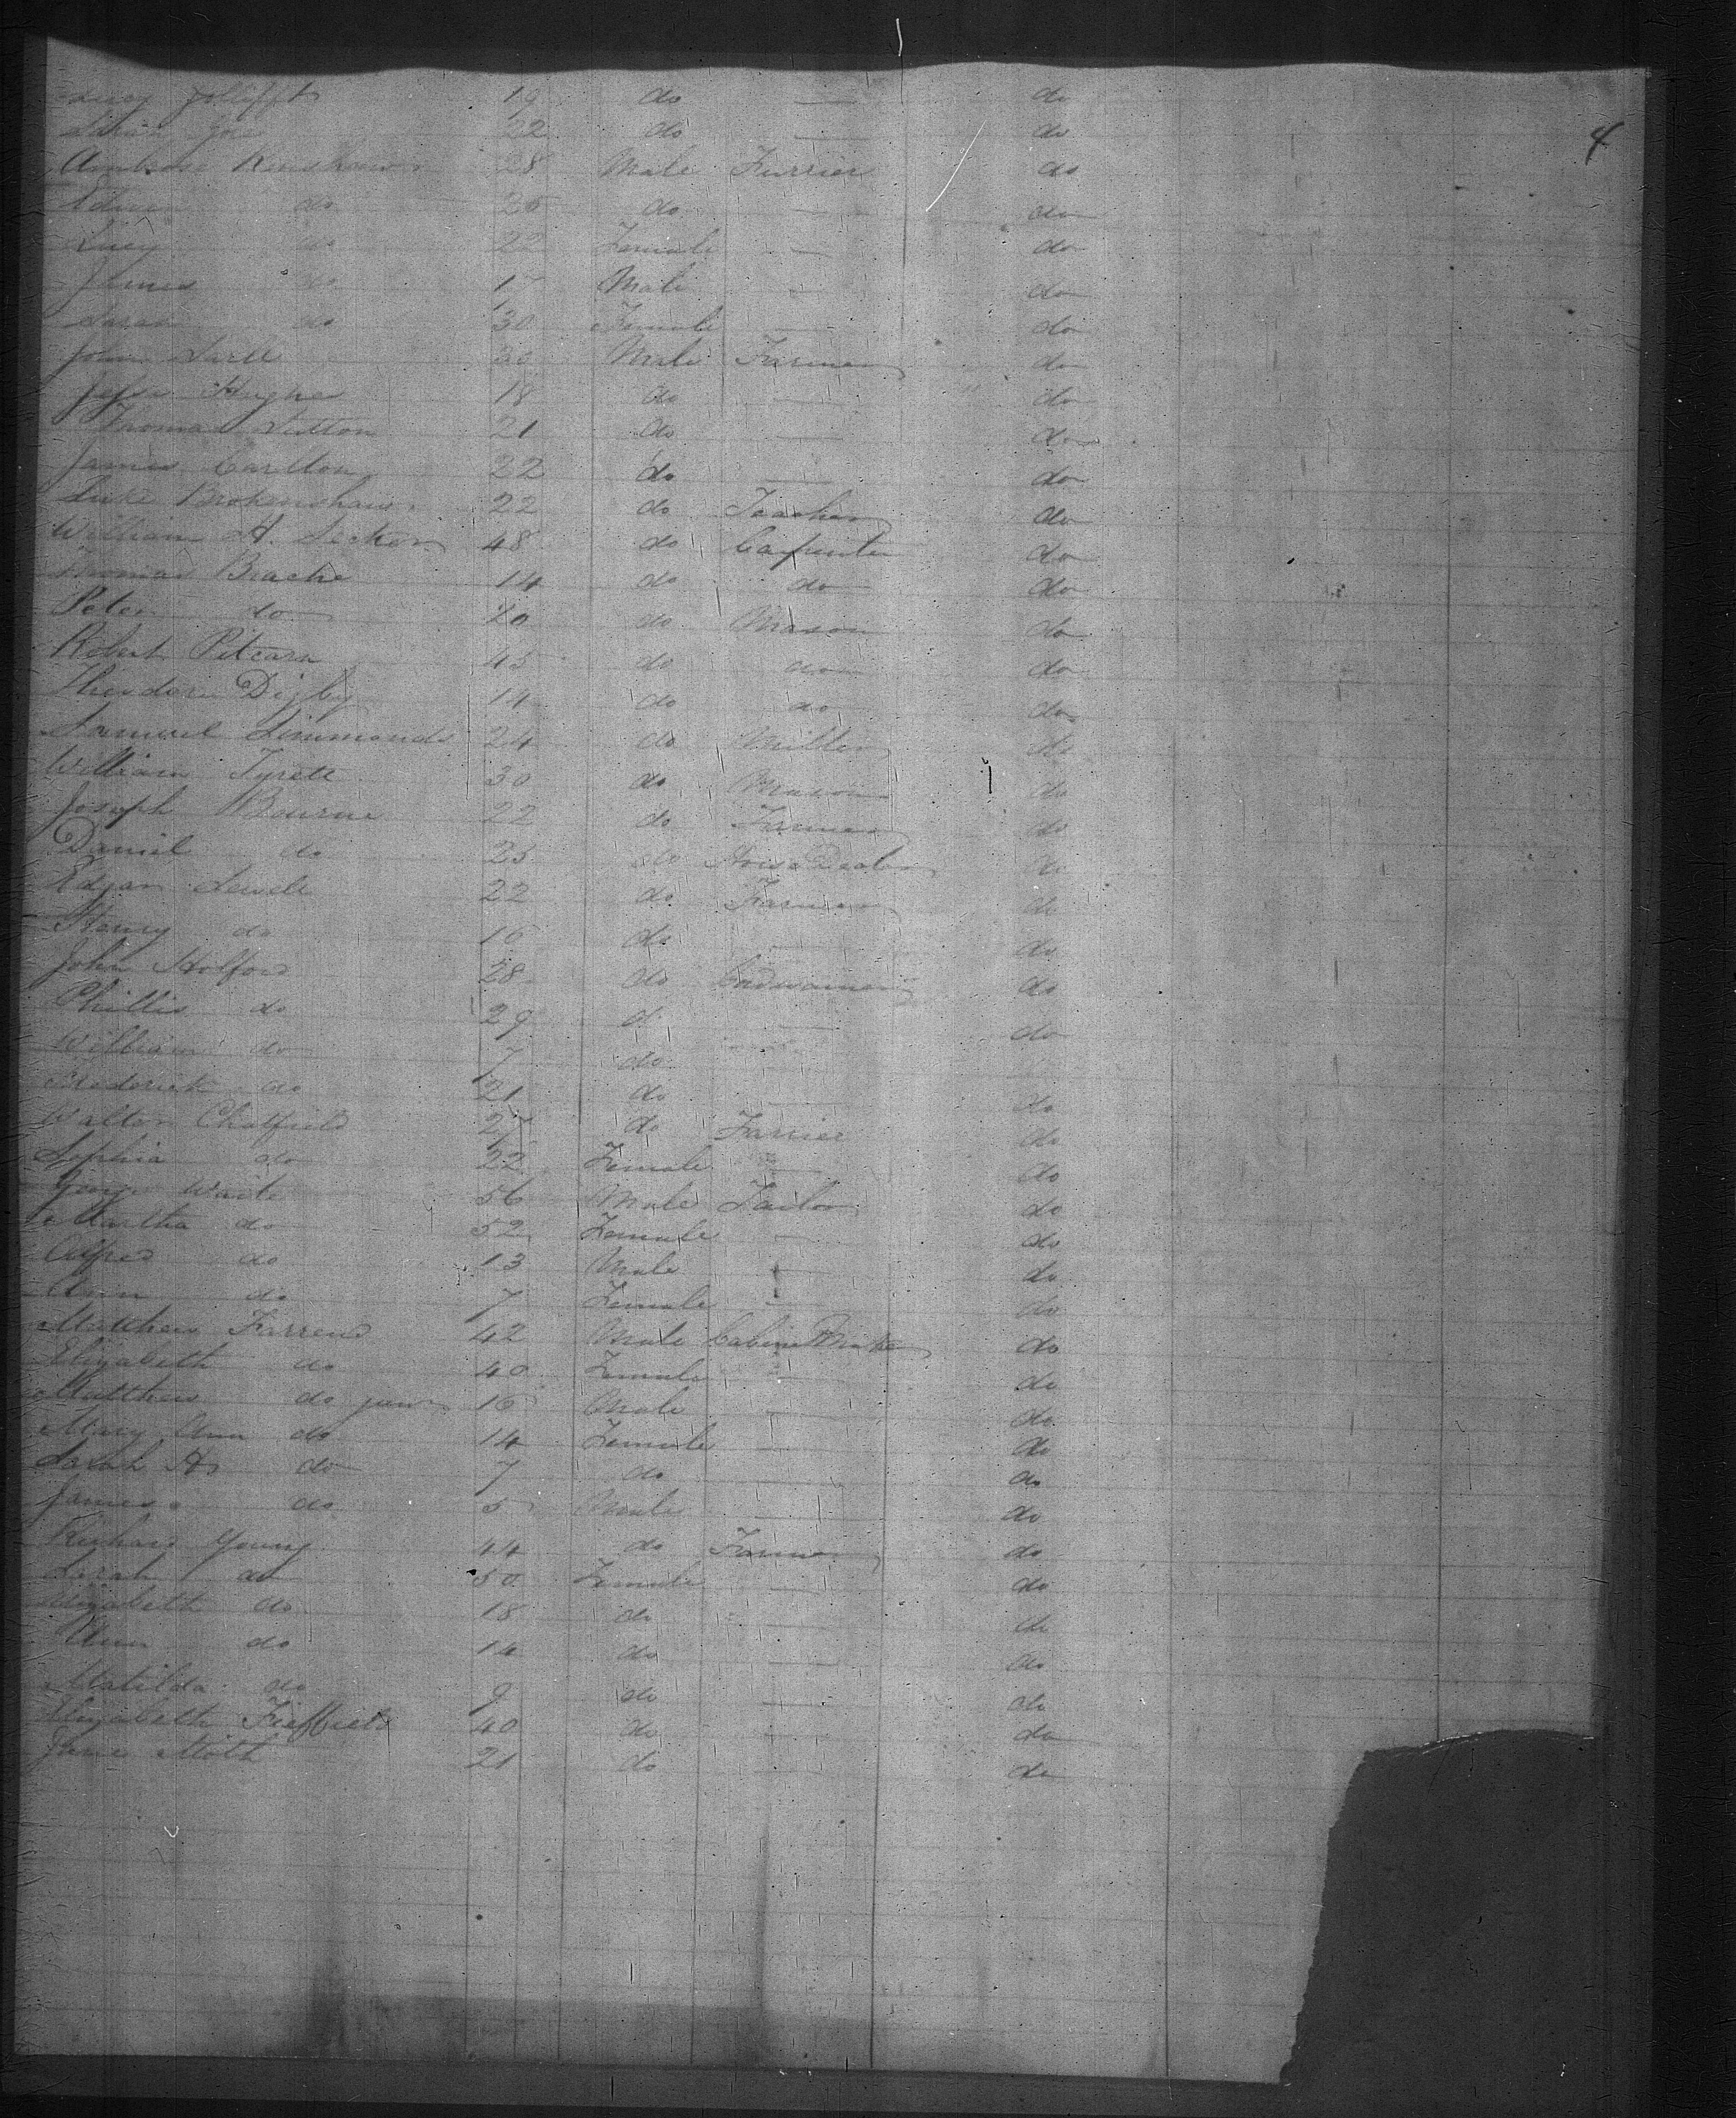 4
Lucy Jolliffe 19 do — do
Sarah 22 do — do
Ambrose Renshaw 28 Male Furrier do
Edwin do 25 do — do
Lucy do 22 Female — do
James do 17 Male — do
Sarah do 30 Female — do
John 30 Male Farmer do
Jesse Hughes 18 do — do
Thomas Sutton 21 do — do
James Carlton 22 do — do
Luke Brokenshaw 22 do Teacher do
William H. Secker 48 do Carpenter do
Thomas Brache 14 do do do
Peter do 40 do Mason do
Robert Pitcarn 45 do do do
Theodore Digby 14 do do do
Samuel Simmonds 24 do Miller do
William Tyrett 30 do Mason do
Joseph Bourne 22 do Farmer do
Daniel do 25 do Horse Dealer do
Edgar Sewell 22 do Farmer do
Henry do 16 do — do
John Holford 28 do Cordwainer do
Phillis do 29 do — do
William do 7 do —
Frederick do 21 do — do
Walton Chatfield 27 do Farrier do
Sophia do 22 Female — do
George Waite 56 Male Tailor do
Martha do 52 Female — do
Alfred do 13 Male — do
Ann do 7 Female — do
Matthew Farrend 42 Male Cabinet Maker do
Elizabeth do 40 Female — do
Matthew do junr 16 Male — do
Mary Ann do 14 Female — do
Sarah A do 7 do — do
James do 5 Male — do
Richard Young 44 do Farmer do
Sarah do 50 Female — do
Elizabeth do 18 do — do
Ann do 14 do — do
Matilda do 9 do — do
Elizabeth 40 do — do
Jane Moth 21 do — do